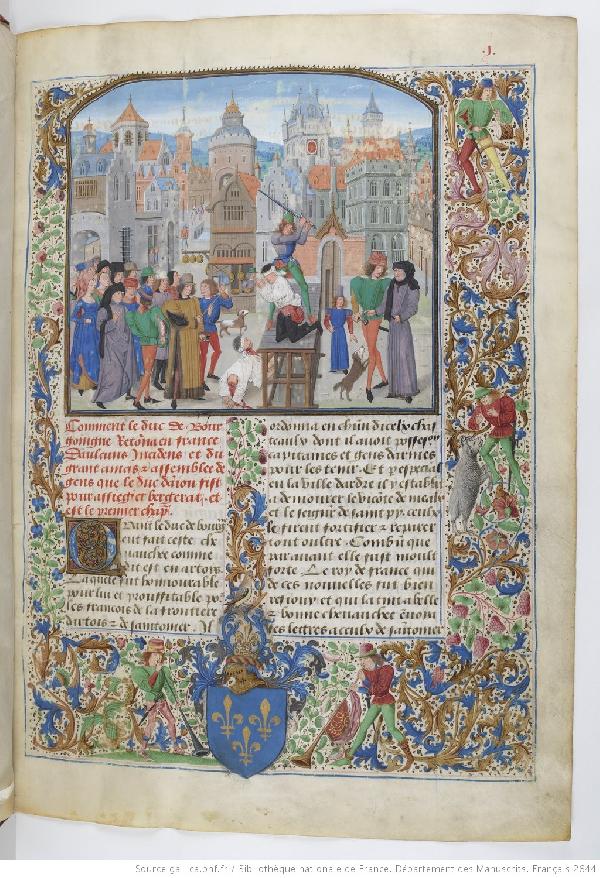 .J.
Comment le duc de Bour
goingne Retourna en france
et du
grant amas & assemblee de
gens que le duc daniou fist
pour assegier bergerat. et
est le premier chap
Quant le duc de bour
eut faicte ceste che
uauchee comme
dit est en artois
Laquele fut honnourable
pour lui et prouffitable po
les francois de la frontiere
dartois & de saintomer. Il
ordonna en chun dicelx chas
teaulx dont il auoit possession
capitaines et gens darmes
pour les tenir. Et p especial
en la ville dardre il y establi
a demourer le viconte de meaulx
et le seigneur de saint py. ceulx
le firent fortifier & reparer
tout oultre. Combn que
par auant elle fust moult
forte. Le roy de france qui
de ces nouuelles fut bien
resiouy et qui la tint a belle
& bonne cheuauchee enuoia
ses lettres a ceulx de saintomer
Source gallica.bnf.fr / Bibliothèque nationale de France. Département des Manuscrits. Français 2644